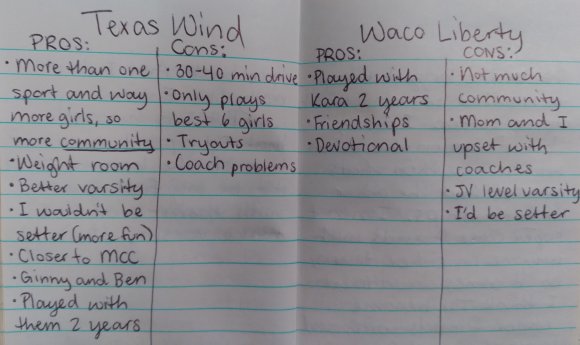 Texas Wind
PROS:
• More than one
sport and way
more girls, so
more community
• Weight room
• Better varsity
• I wouldn't be
setter (more fun)
• Closer to MCC
• Ginny and Ben
• Played with
them 2 years
Cons:
• 30-40 min drive
• Only plays
best 6 girls
• Tryouts
• Coach problems
Waco Liberty
PROS:
• Played with
Kara 2 years
• Friendships
• Devotional
CONS:
• Not much
community
• Mom and I
upset with
coaches
• JV level varsity
• I'd be setter